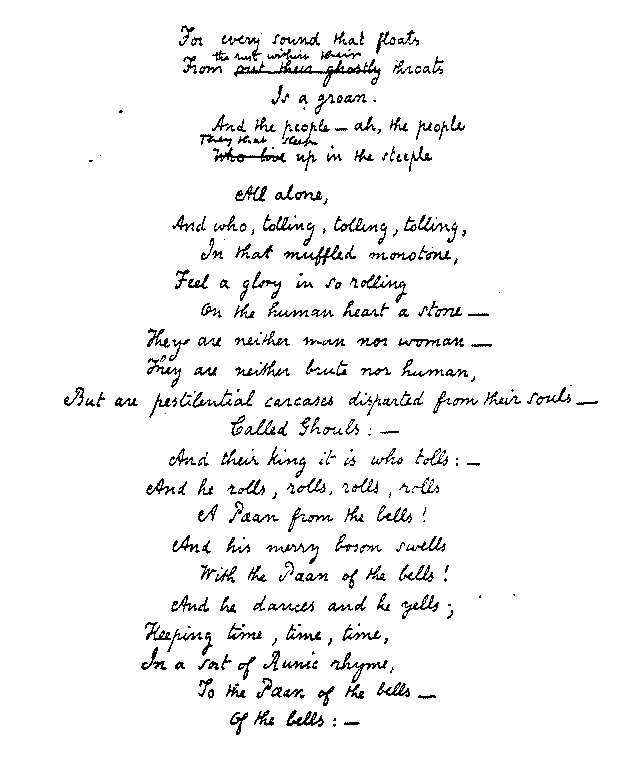 For every sound that floats
the rust within their
From out their ghostly throats
Is a groan.
And the people — ah, the people
They that sleep
Who live up in the steeple
All alone,
And who, tolling, tolling, tolling,
In that muffled monotone,
Feel a glory in so rolling
On the human heart a stone —
They are neither man nor woman —
They are neither brute nor human,
But are pestilential carcases disparted from their souls —
Called Ghouls: —
And their king it is who tolls: —
And he rolls, rolls, rolls, rolls
A Pæan from the bells!
And his merry bosom swells
With the Pæan of the bells!
And he dances and he yells;
Keeping time, time, time,
In a sort of Runic rhyme,
To the Pæan of the bells —
Of the bells: —